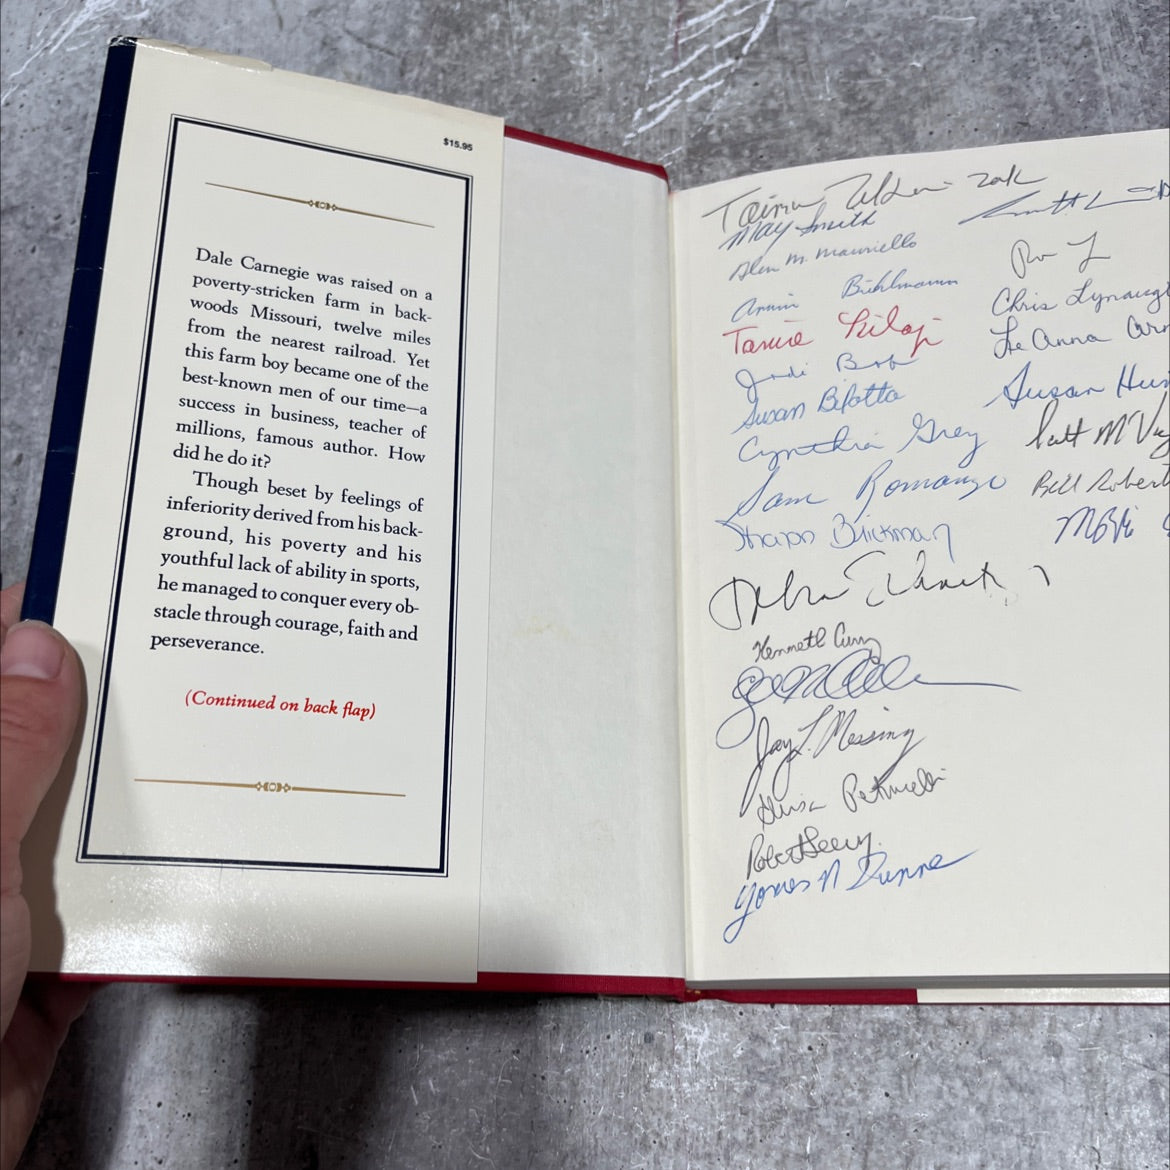 $15.95
Dale Carnegie was raised on a
poverty-stricken farm in back-
woods Missouri, twelve miles
from the nearest railroad. Yet
this farm boy became one of the
best-known men of our time—a
success in business, teacher of
millions, famous author. How
did he do it?
Though beset by feelings of
inferiority derived from his back-
ground, his poverty and his
youthful lack of ability in sports,
he managed to conquer every ob-
stacle through courage, faith and
perseverance.
(Continued on back flap)
May Smith
M. Mauriello
Armin Biehlmann
Tamie
Jodi
Susan Bilotta
Cynthia Grey
Sam Romango
Sharon Brickman
Debra
Kenneth Curry
Jay L. Messing
Robert Seery
James N Dunne
Chris
LeAnna
Susan
Scott
Bill Robert